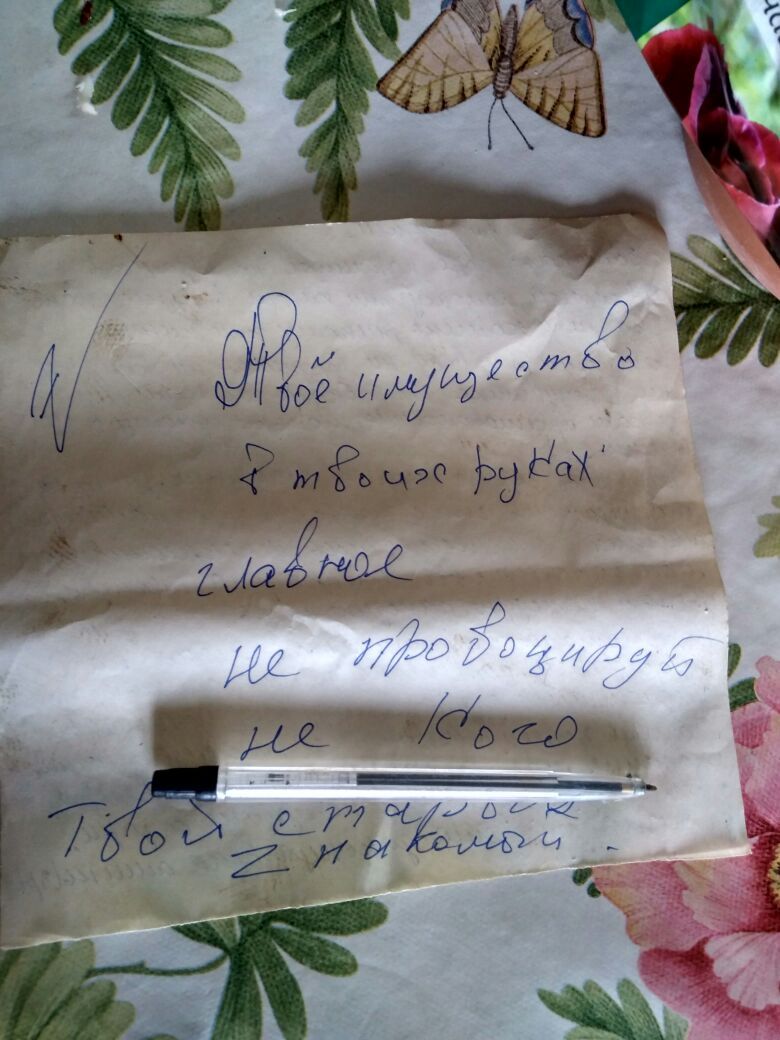 Твоё имущество
в твоих руках
главное
не провоцируй
не кого
Твой старый
знакомый.